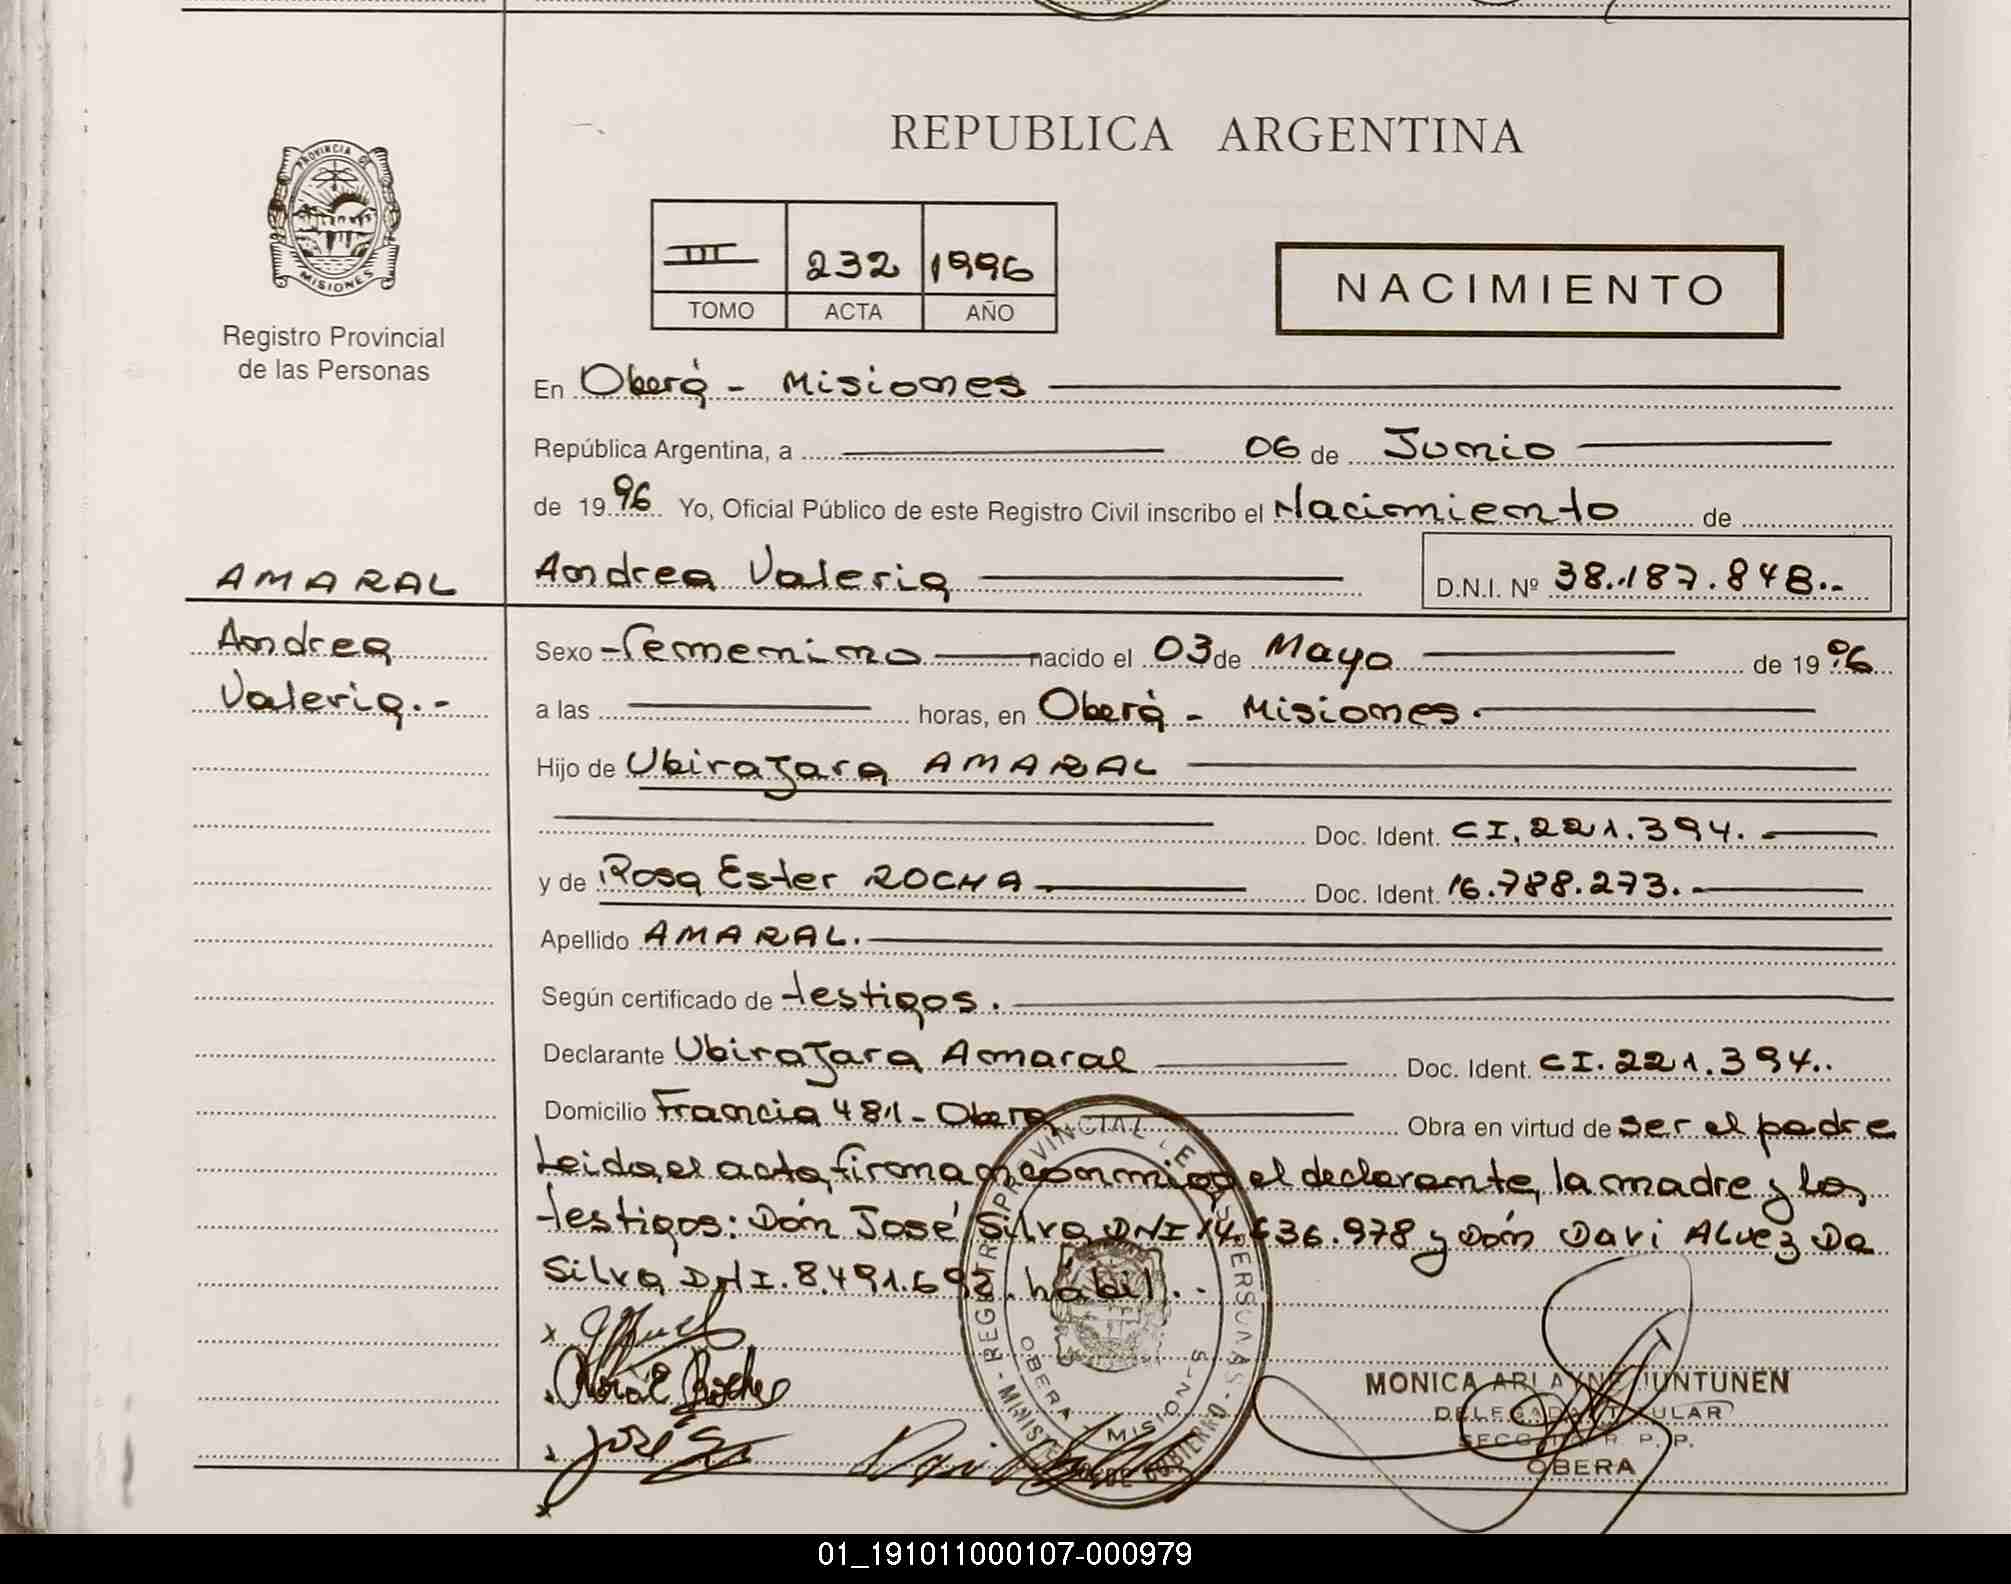 PROVINCIA DE
MISIONES
Registro Provincial
de las Personas
REPUBLICA ARGENTINA
III 232 1996
TOMO ACTA AÑO
NACIMIENTO
En Oberá - Misiones
República Argentina, a 06 de Junio
de 1996 Yo, Oficial Público de este Registro Civil inscribo el Nacimiento de
AMARAL Andrea Valeria D.N.I. Nº 38.187.848.-
Andrea
Valeria.-
Sexo Femenino nacido el 03 de Mayo de 1996
a las horas, en Oberá - Misiones.
Hijo de Ubirajara AMARAL
Doc. Ident. CI. 221.394.
y de Rosa Ester ROCHA Doc. Ident. 16.788.273.
Apellido AMARAL.
Según certificado de testigos.
Declarante Ubirajara Amaral Doc. Ident. CI. 221.394..
Domicilio Francia 481 - Obera Obra en virtud de ser el padre
Leida el acta, firman conmigo el declarante, la madre y los
testigos: Dón José Silva DNI 14.636.978 y Dón Davi Alvez Da
Silva DNI. 8.491.692. hábil.-
REGISTRO PROVINCIAL DE LAS PERSONAS
MINISTERIO DE GOBIERNO
OBERA MISIONES
José
MONICA ARLAYNE JUNTUNEN
DELEGADA TITULAR
R. P. P.
OBERA
01_191011000107-000979